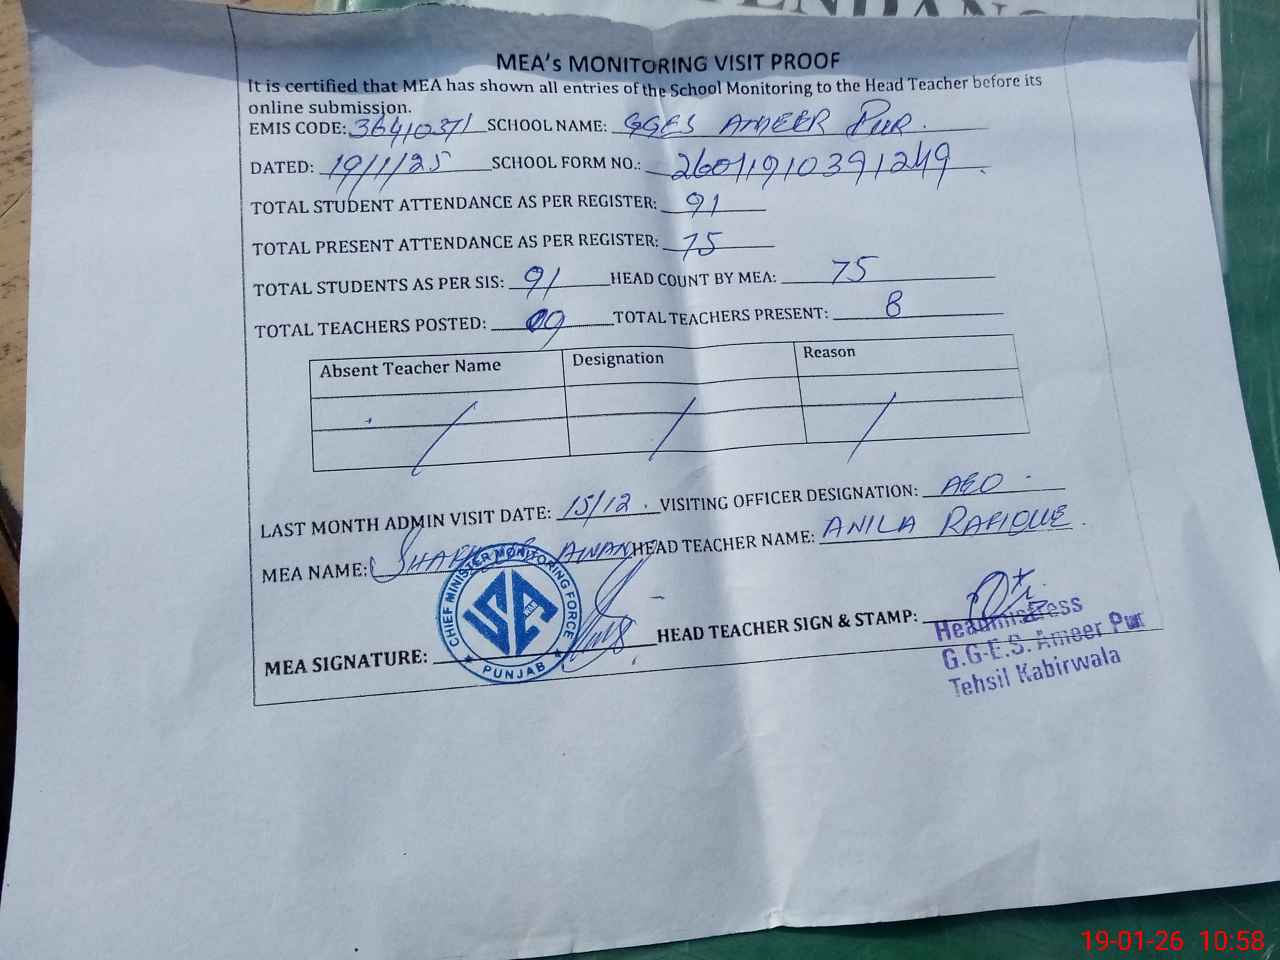 ENDANC
MEA's MONITORING VISIT PROOF
It is certified that MEA has shown all entries of the School Monitoring to the Head Teacher before its
online submission.
EMIS CODE: 36410371 SCHOOL NAME: GGES AMEER PUR.
DATED: 19/1/25 SCHOOL FORM NO.: 26011910391249
TOTAL STUDENT ATTENDANCE AS PER REGISTER: 91
TOTAL PRESENT ATTENDANCE AS PER REGISTER: 75
TOTAL STUDENTS AS PER SIS: 91 HEAD COUNT BY MEA: 75
TOTAL TEACHERS POSTED: 09 TOTAL TEACHERS PRESENT: 8
Absent Teacher Name Designation Reason
LAST MONTH ADMIN VISIT DATE: 15/12. VISITING OFFICER DESIGNATION: AEO.
MEA NAME: AWAN HEAD TEACHER NAME: ANILA RAFIQUE.
MEA SIGNATURE: HEAD TEACHER SIGN & STAMP:
CHIEF MINISTER MONITORING FORCE
PUNJAB
Headmistress
G.G.E.S. Ameer Pur
Tehsil Kabirwala
19-01-26 10:58